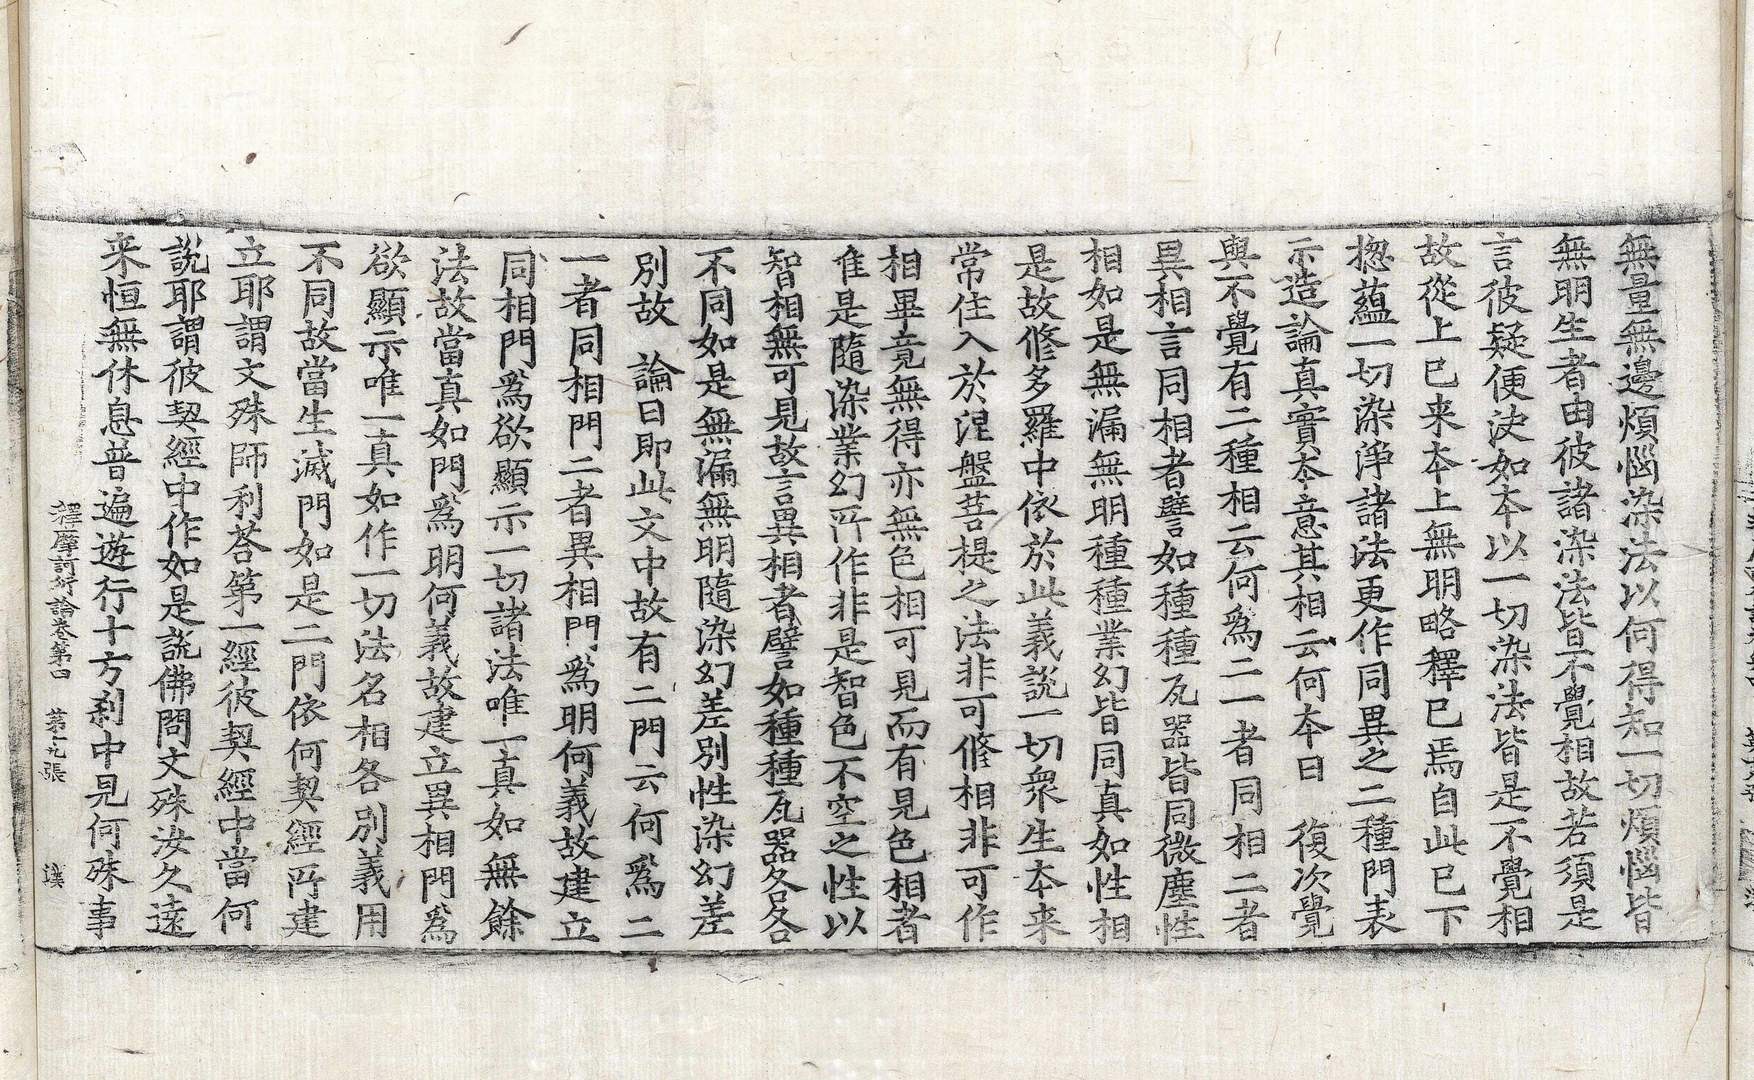 無量無邊煩惱染法以何得知一切煩惱皆
無明生者由彼諸染法皆不覺相故若須是
言彼疑便決如本以一切染法皆是不覺相
故從上已来本上無明略釋已焉自此已下
揔蘊一切染淨諸法更作同異之二種門表
示造論真實本意其相云何本曰　復次覺
與不覺有二種相云何爲二一者同相二者
異相言同相者譬如種種瓦器皆同微塵性
相如是無漏無明種種業幻皆同真如性相
是故修多羅中依於此義說一切衆生本来
常住入於涅盤菩提之法非可修相非可作
相畢竟無得亦無色相可見而有見色相者
唯是隨染業幻所作非是智色不空之性以
智相無可見故言異相者譬如種種瓦器各各
不同如是無漏無明隨染幻差別性染幻差
別故　論曰即此文中故有二門云何爲二
一者同相門二者異相門爲明何義故建立
同相門爲欲顯示一切諸法唯一真如無餘
法故當真如門爲明何義故建立異相門爲
欲顯示唯一真如作一切法名相各別義用
不同故當生滅門如是二門依何契經所建
立耶謂文殊師利荅第一經彼契經中當何
說耶謂彼契經中作如是說佛問文殊汝久遠
来恒無休息普遍遊行十方刹中見何殊事
釋摩訶衍論卷第四　第十九張　漠